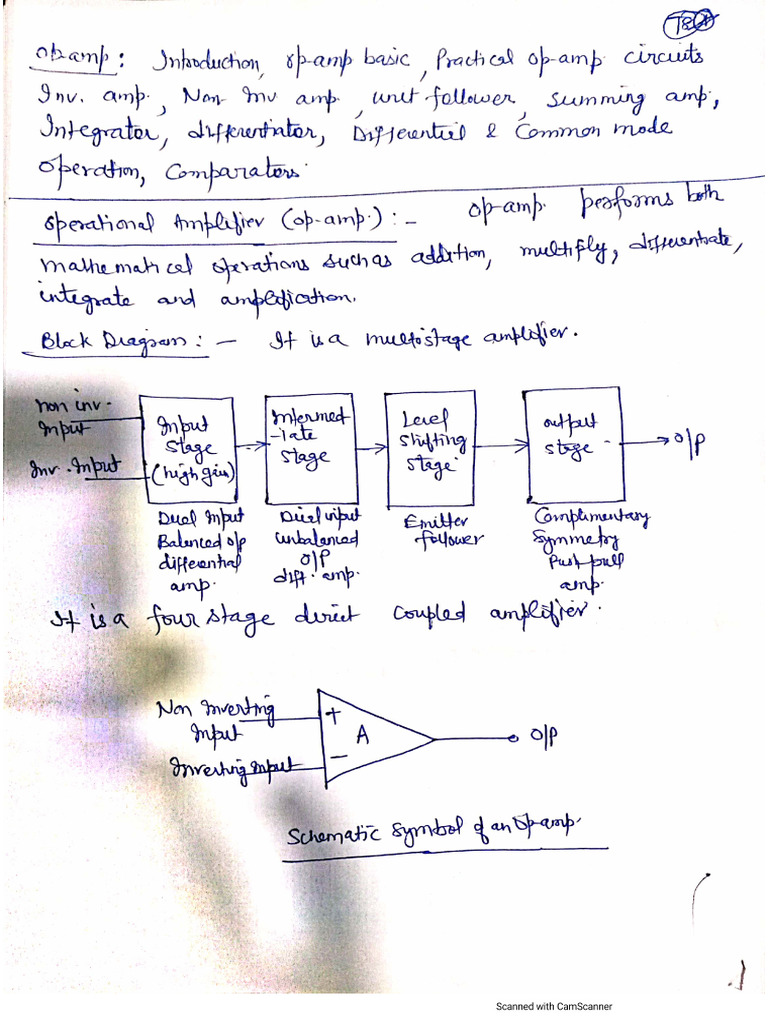 op-amp: Introduction, op-amp basic, Practical op-amp circuits
Inv. amp, Non-Inv amp, unit follower, summing amp,
Integrator, differentiator, Differential & Common mode
operation, Comparators.
Operational Amplifier (op-amp.):- op-amp. performs both
mathematical operations such as addition, multiply, differentiate,
integrate and amplification.
Block Diagram:- It is a multistage amplifier.
non inv.
Input
Inv. Input
Input
Stage
(high gain)
Intermed
-iate
stage
Level
shifting
stage
output
stage
O/P
Dual Input
Balanced o/p
differential
amp.
Dual input
unbalanced
O/P
diff. amp.
Emitter
follower
Complimentary
Symmetry
Push pull
amp.
It is a four stage direct coupled amplifier.
Non Inverting
Input
Inverting Input
+
-
A
O/P
Schematic Symbol of an op-amp.
Scanned with CamScanner